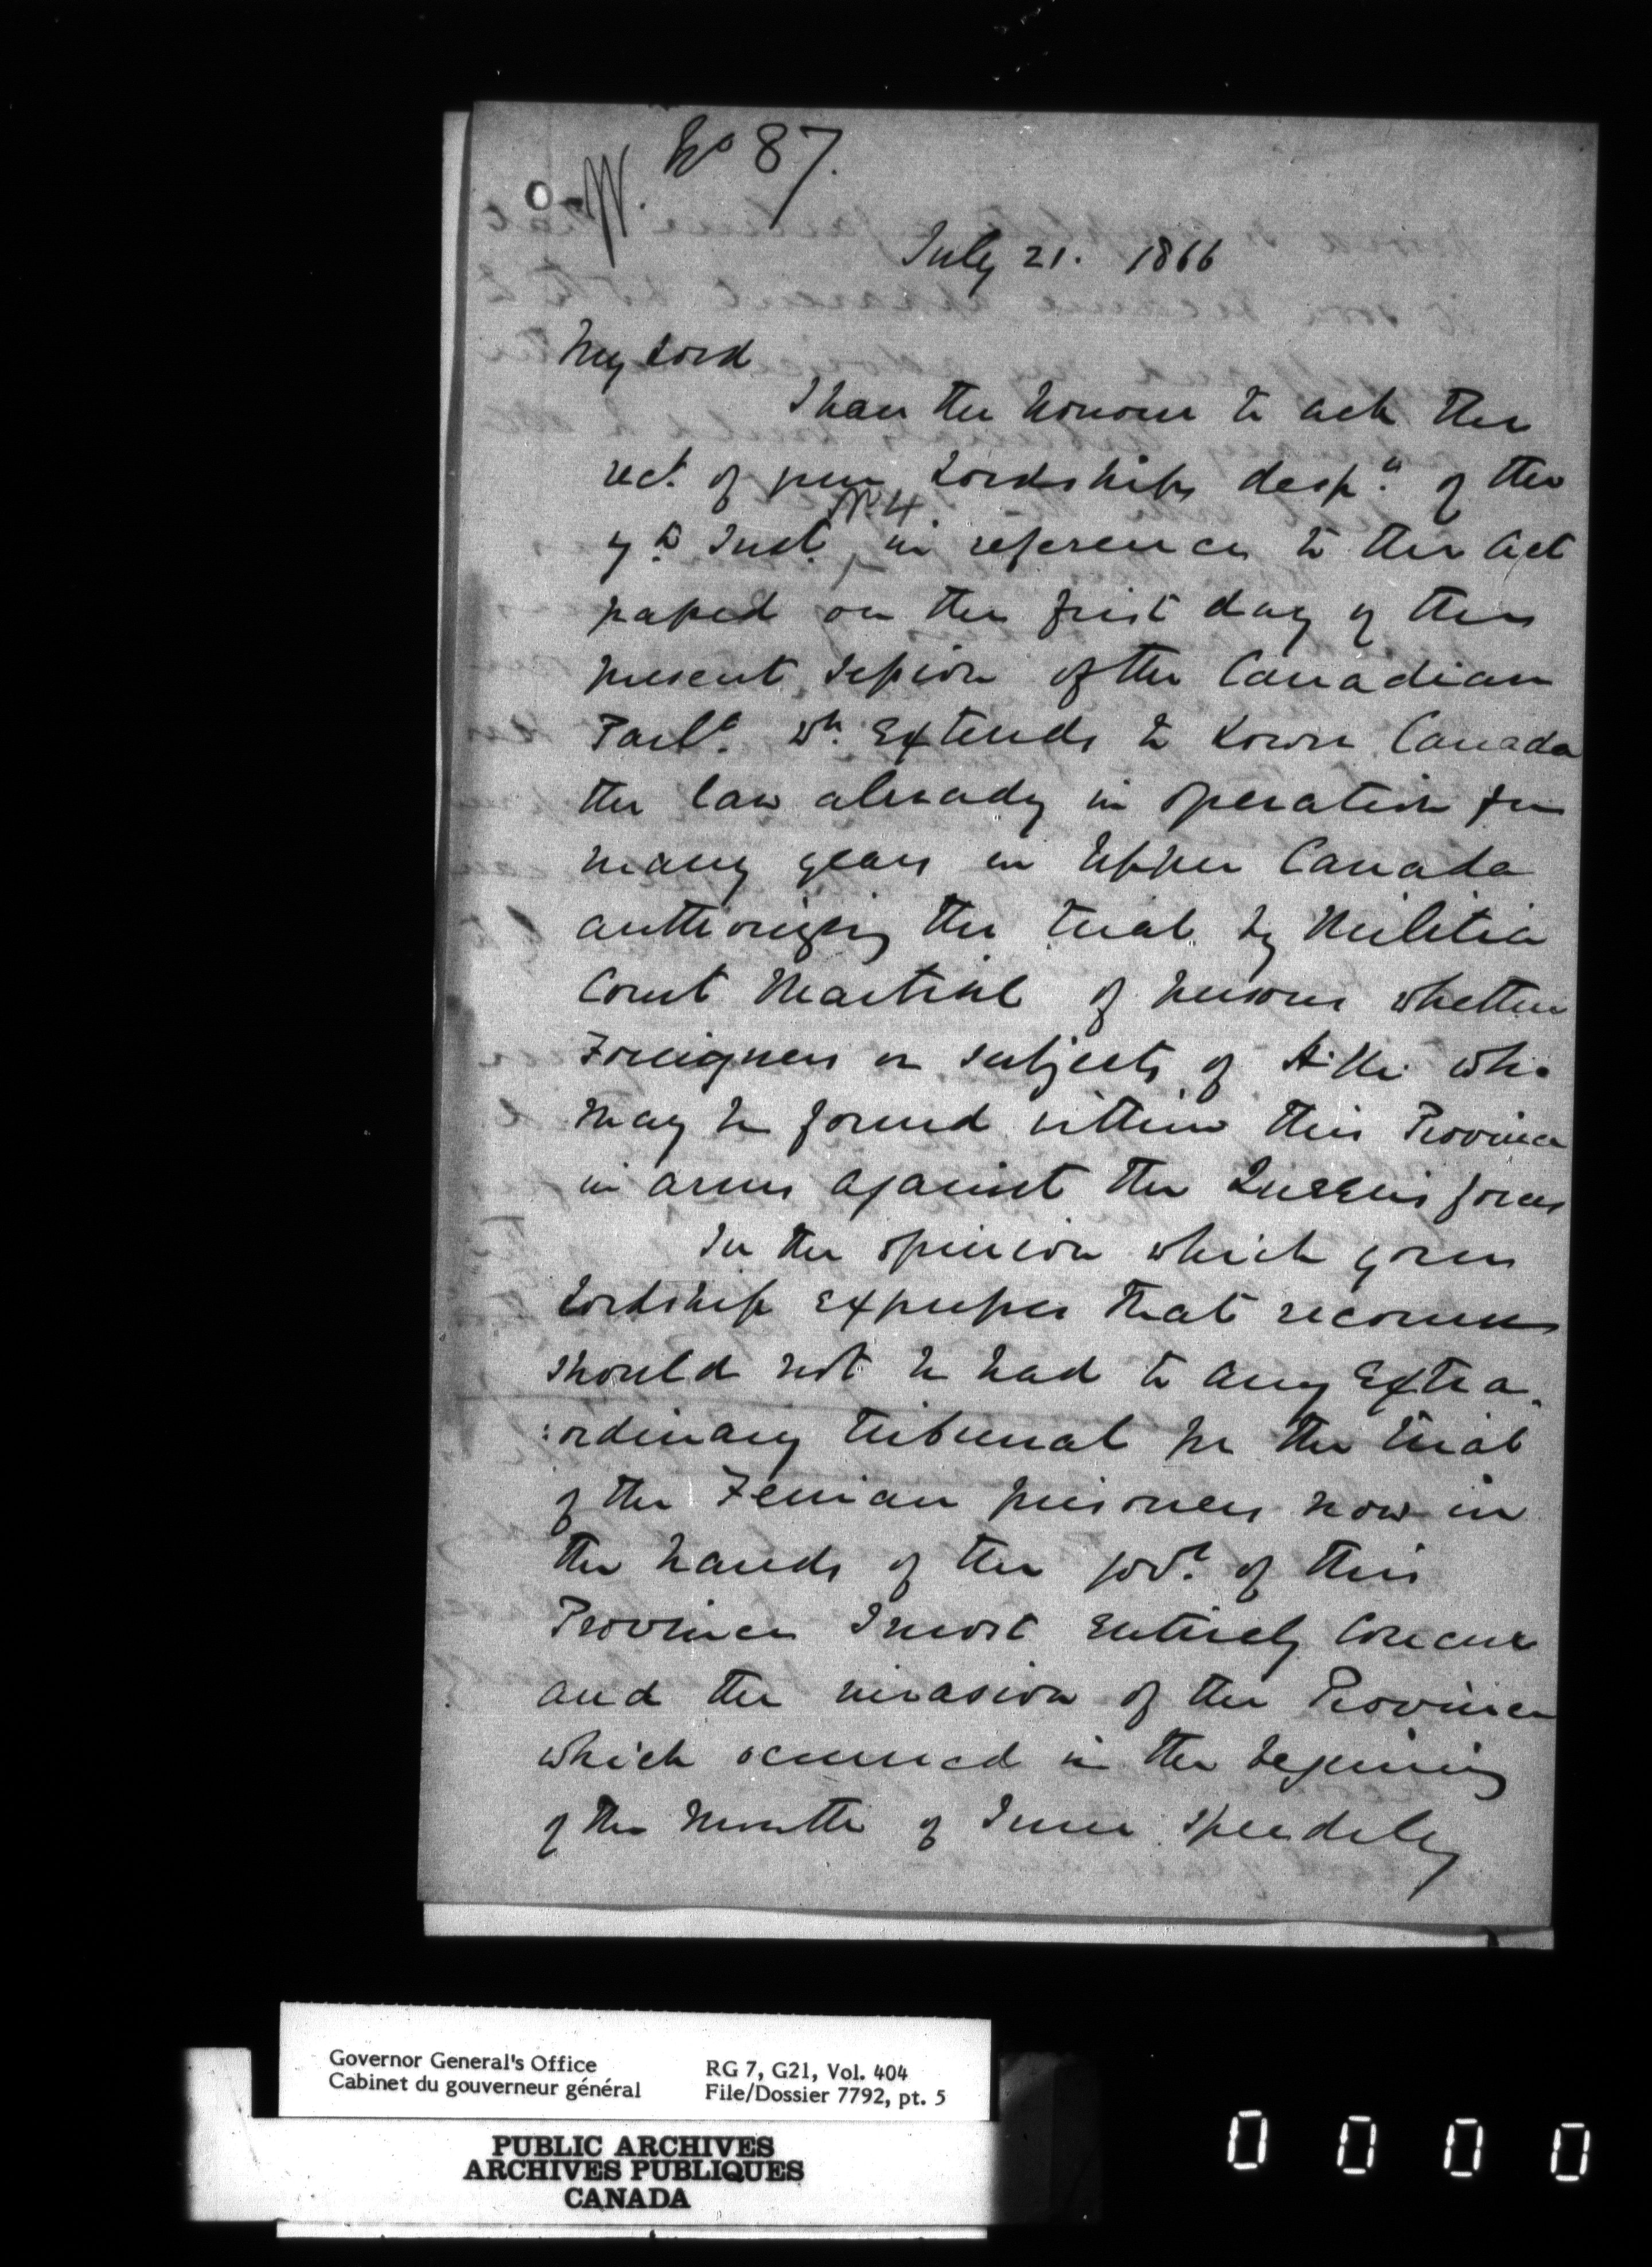 No 87.
W.
July 21. 1866
My Lord
I have the honour to ack the
rect. of your Lordships desph. of the
No 4
7th Inst. in reference to the Act
passed on the first day of the
present Session of the Canadian
Parlt. wh. extends to Lower Canada
the law already in operation for
many years in Upper Canada
authorizing the trial by Militia
Court Martial of persons whether
Foreigners or subjects of H.M. who
may be found within this Province
in arms against the Queens forces
In the opinion which your
Lordship expresses that recourse
should not be had to any extra-
:ordinary tribunal for the trial
of the Fenian prisoners now in
the hands of the Govt. of this
Province I most entirely concur
and the invasion of the Province
which occurred in the begining
of the Month of June speedily
Governor General's Office
Cabinet du gouverneur général
RG 7, G21, Vol. 404
File/Dossier 7792, pt. 5
PUBLIC ARCHIVES
ARCHIVES PUBLIQUES
CANADA
0 0 0 0